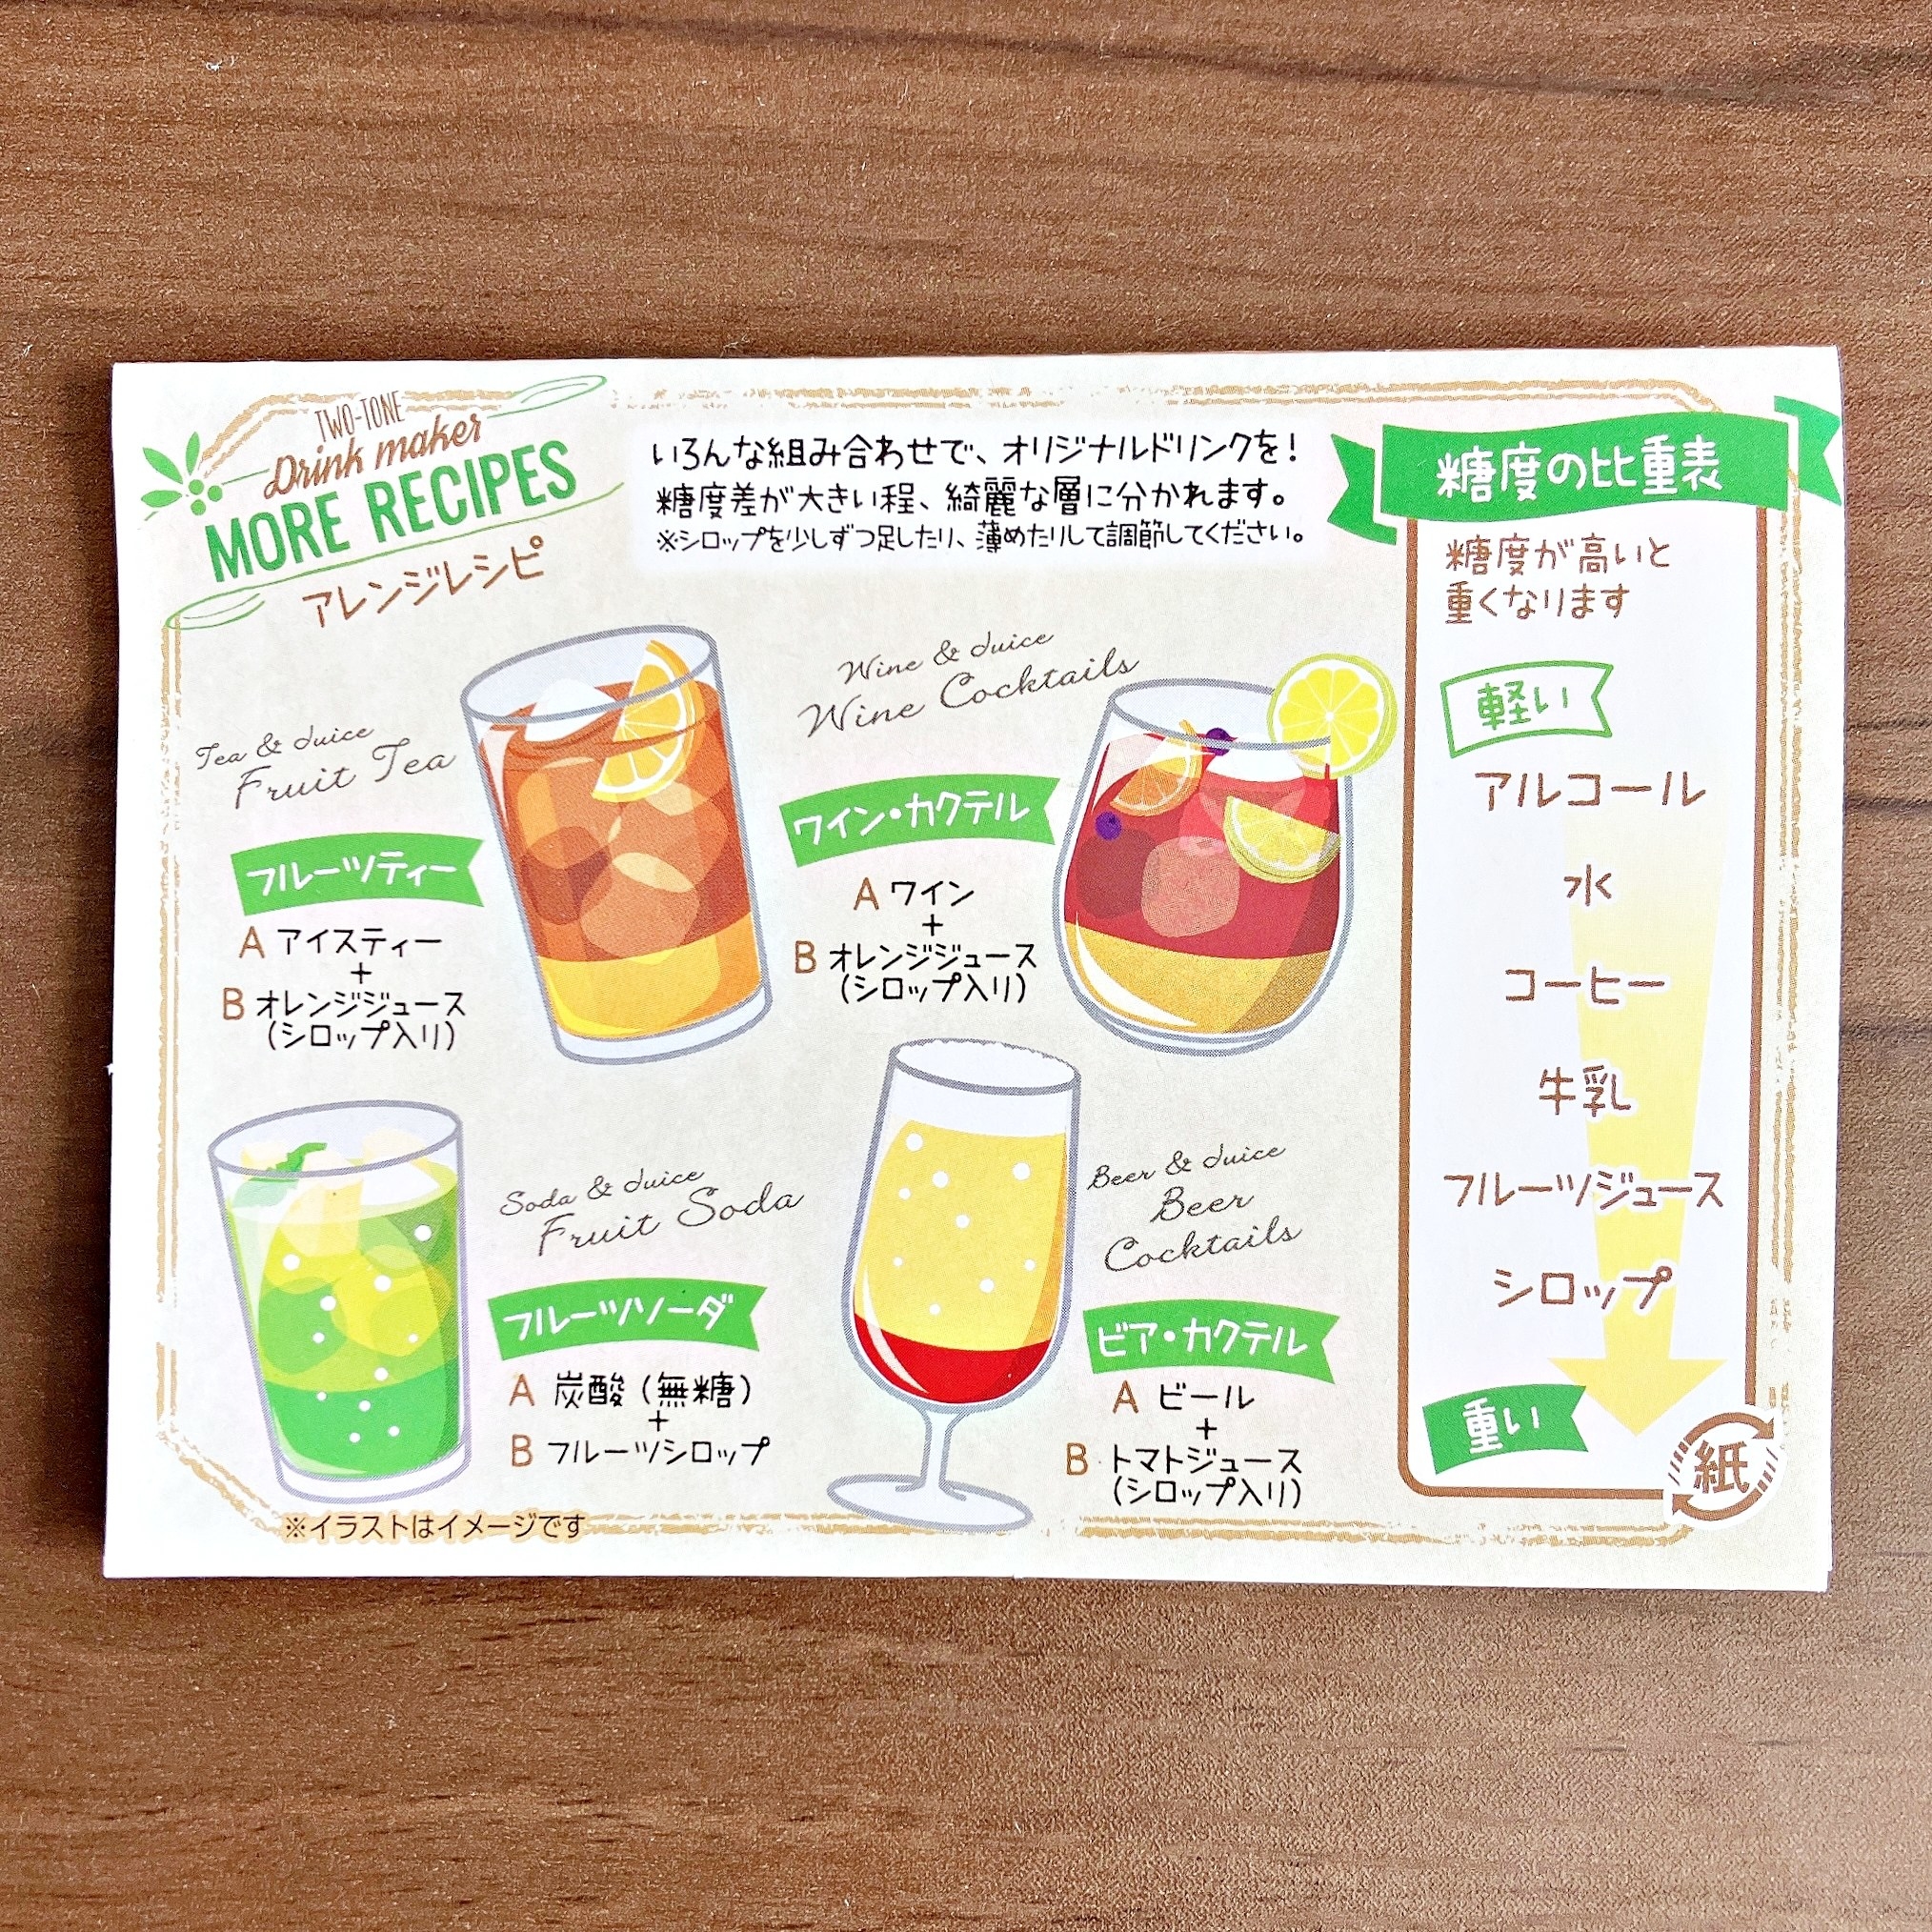 TWO-TONE
Drink maker
MORE RECIPES
アレンジレシピ
いろんな組み合わせで、オリジナルドリンクを！
糖度差が大きい程、綺麗な層に分かれます。
※シロップを少しずつ足したり、薄めたりして調節してください。
Tea & Juice
Fruit Tea
フルーツティー
A アイスティー
+
B オレンジジュース
（シロップ入り）
Wine & Juice
Wine Cocktails
ワイン・カクテル
A ワイン
+
B オレンジジュース
（シロップ入り）
Soda & Juice
Fruit Soda
フルーツソーダ
A 炭酸（無糖）
+
B フルーツシロップ
Beer & Juice
Beer
Cocktails
ビア・カクテル
A ビール
+
B トマトジュース
（シロップ入り）
※イラストはイメージです
糖度の比重表
糖度が高いと
重くなります
軽い
アルコール
水
コーヒー
牛乳
フルーツジュース
シロップ
重い
紙